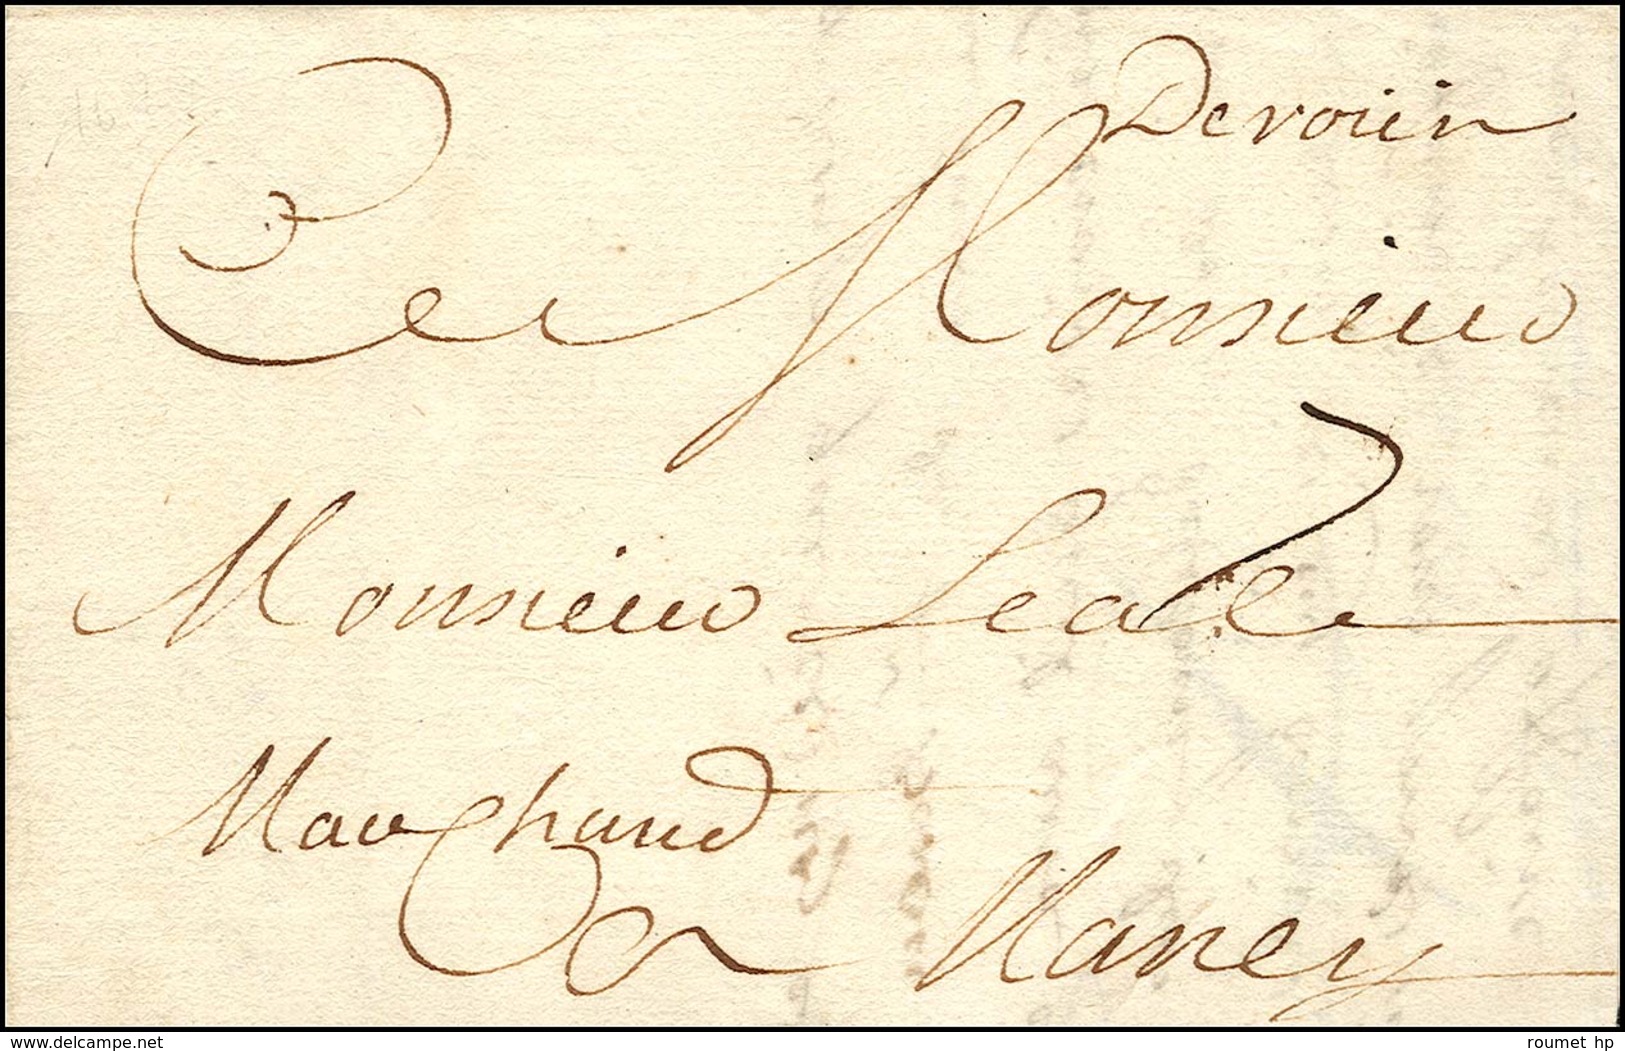 De roüen
A Monsieur
7
Monsieur Leale
Marchand
A Nancy
www.delcampe.net
roumet hp